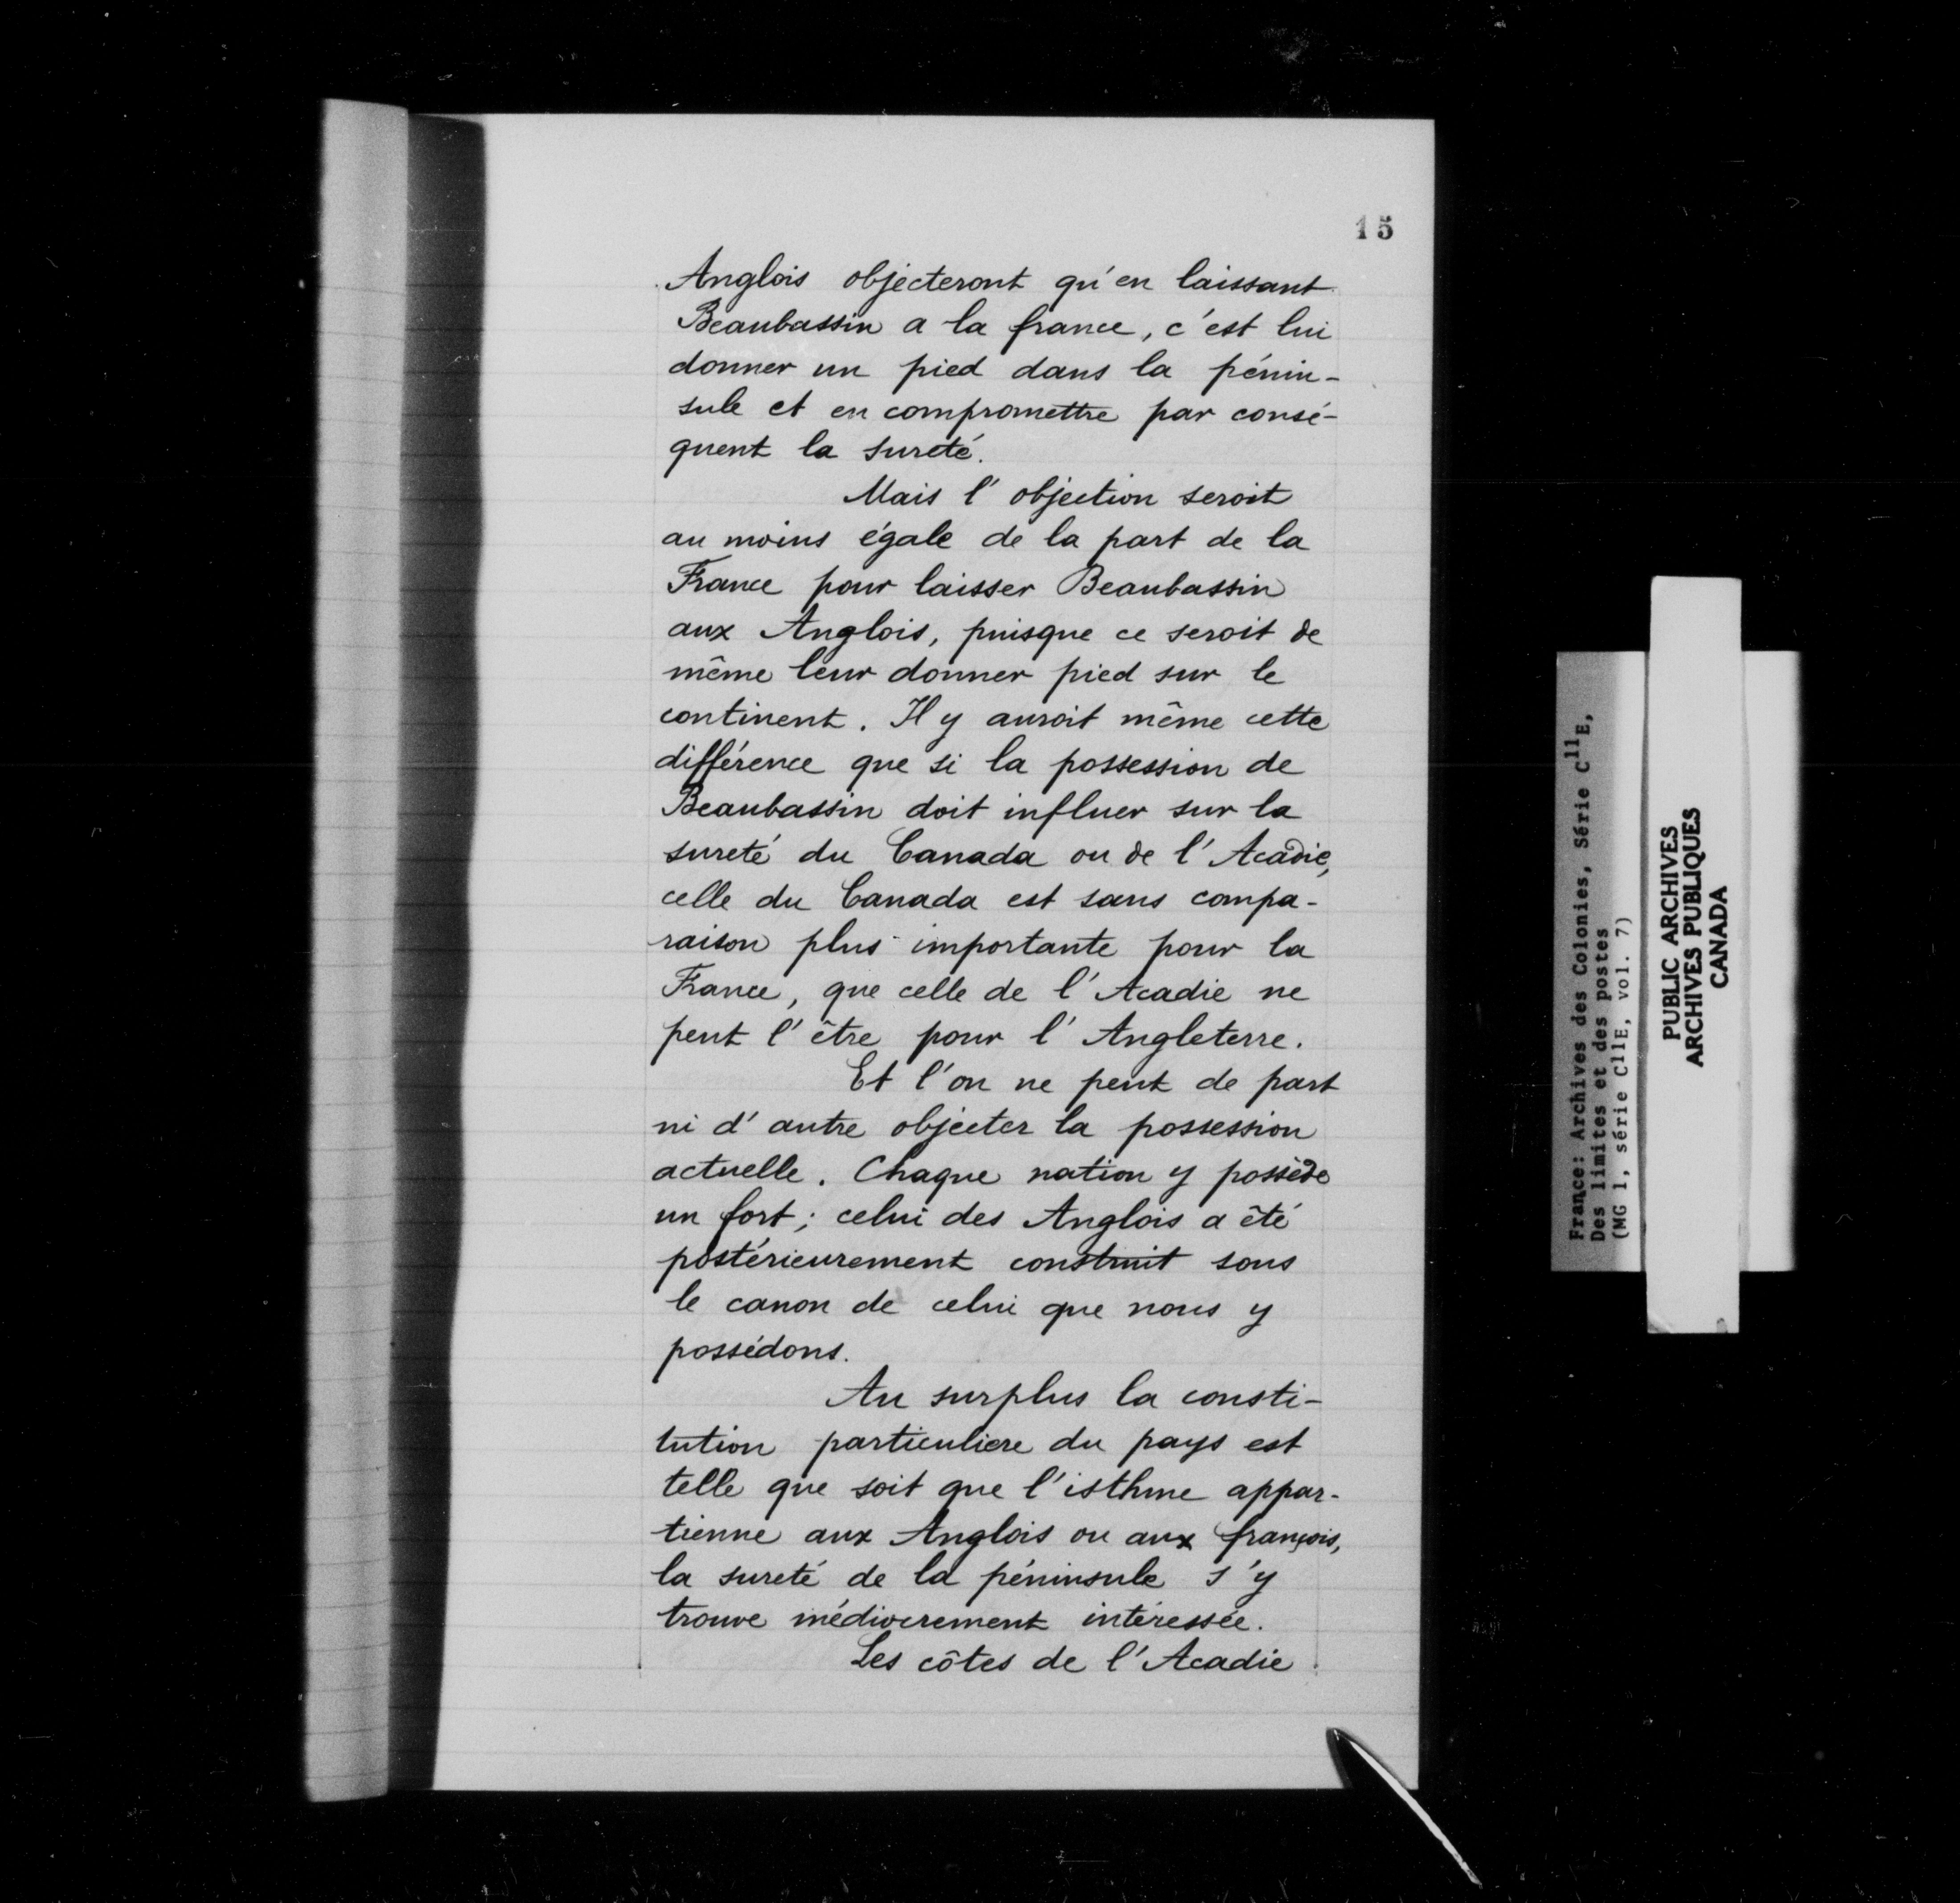 15
Anglois objecteront qu'en laissant
Beaubassin a la france, c'est lui
donner un pied dans la pénin-
sule et en compromettre par consé-
quent la sureté.
Mais l'objection seroit
au moins égale de la part de la
France pour laisser Beaubassin
aux Anglois, puisque ce seroit de
même leur donner pied sur le
continent. Il y auroit même cette
différence que si la possession de
Beaubassin doit influer sur la
sureté du Canada ou de l'Acadie,
celle du Canada est sans compa-
raison plus importante pour la
France, que celle de l'Acadie ne
peut l'être pour l'Angleterre.
Et l'on ne peut de part
ni d'autre objecter la possession
actuelle. Chaque nation y possède
un fort; celui des Anglois a été
postérieurement construit sous
le canon de celui que nous y
possédons.
Au surplus la consti-
tution particuliere du pays est
telle que soit que l'isthme appar-
tienne aux Anglois ou aux françois,
la sureté de la péninsule s'y
trouve médiocrement intéressée.
Les côtes de l'Acadie
France: Archives des Colonies, Série C11E,
Des limites et des postes
(MG 1, série C11E, vol. 7)
PUBLIC ARCHIVES
ARCHIVES PUBLIQUES
CANADA